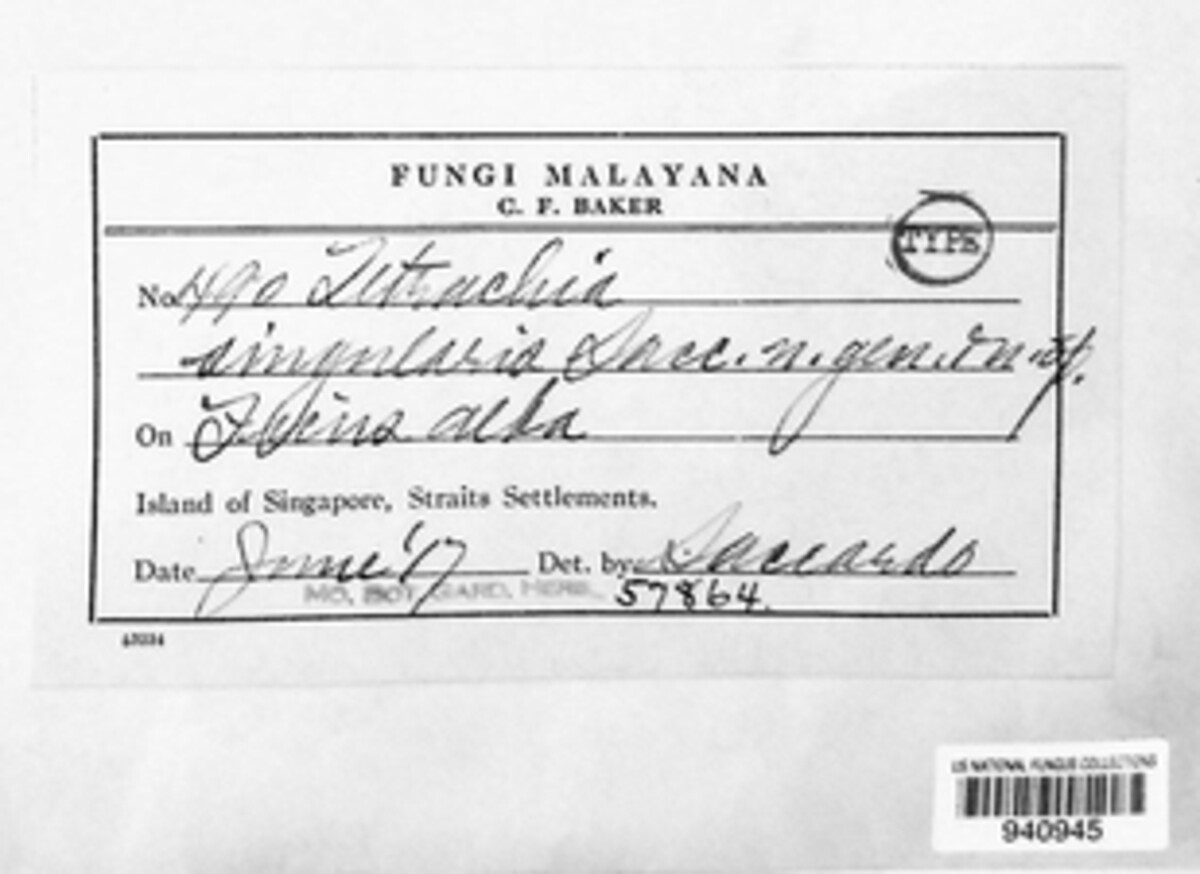 FUNGI MALAYANA
C. F. BAKER
TYPE
No. 490 Tetrachia
singularis Sacc. n. gen. & n. sp.
On alba
Island of Singapore, Straits Settlements.
Date June '17 Det. by Saccardo
MO. BOT. GARD. HERB. 57864.
US NATIONAL FUNGUS COLLECTIONS
940945